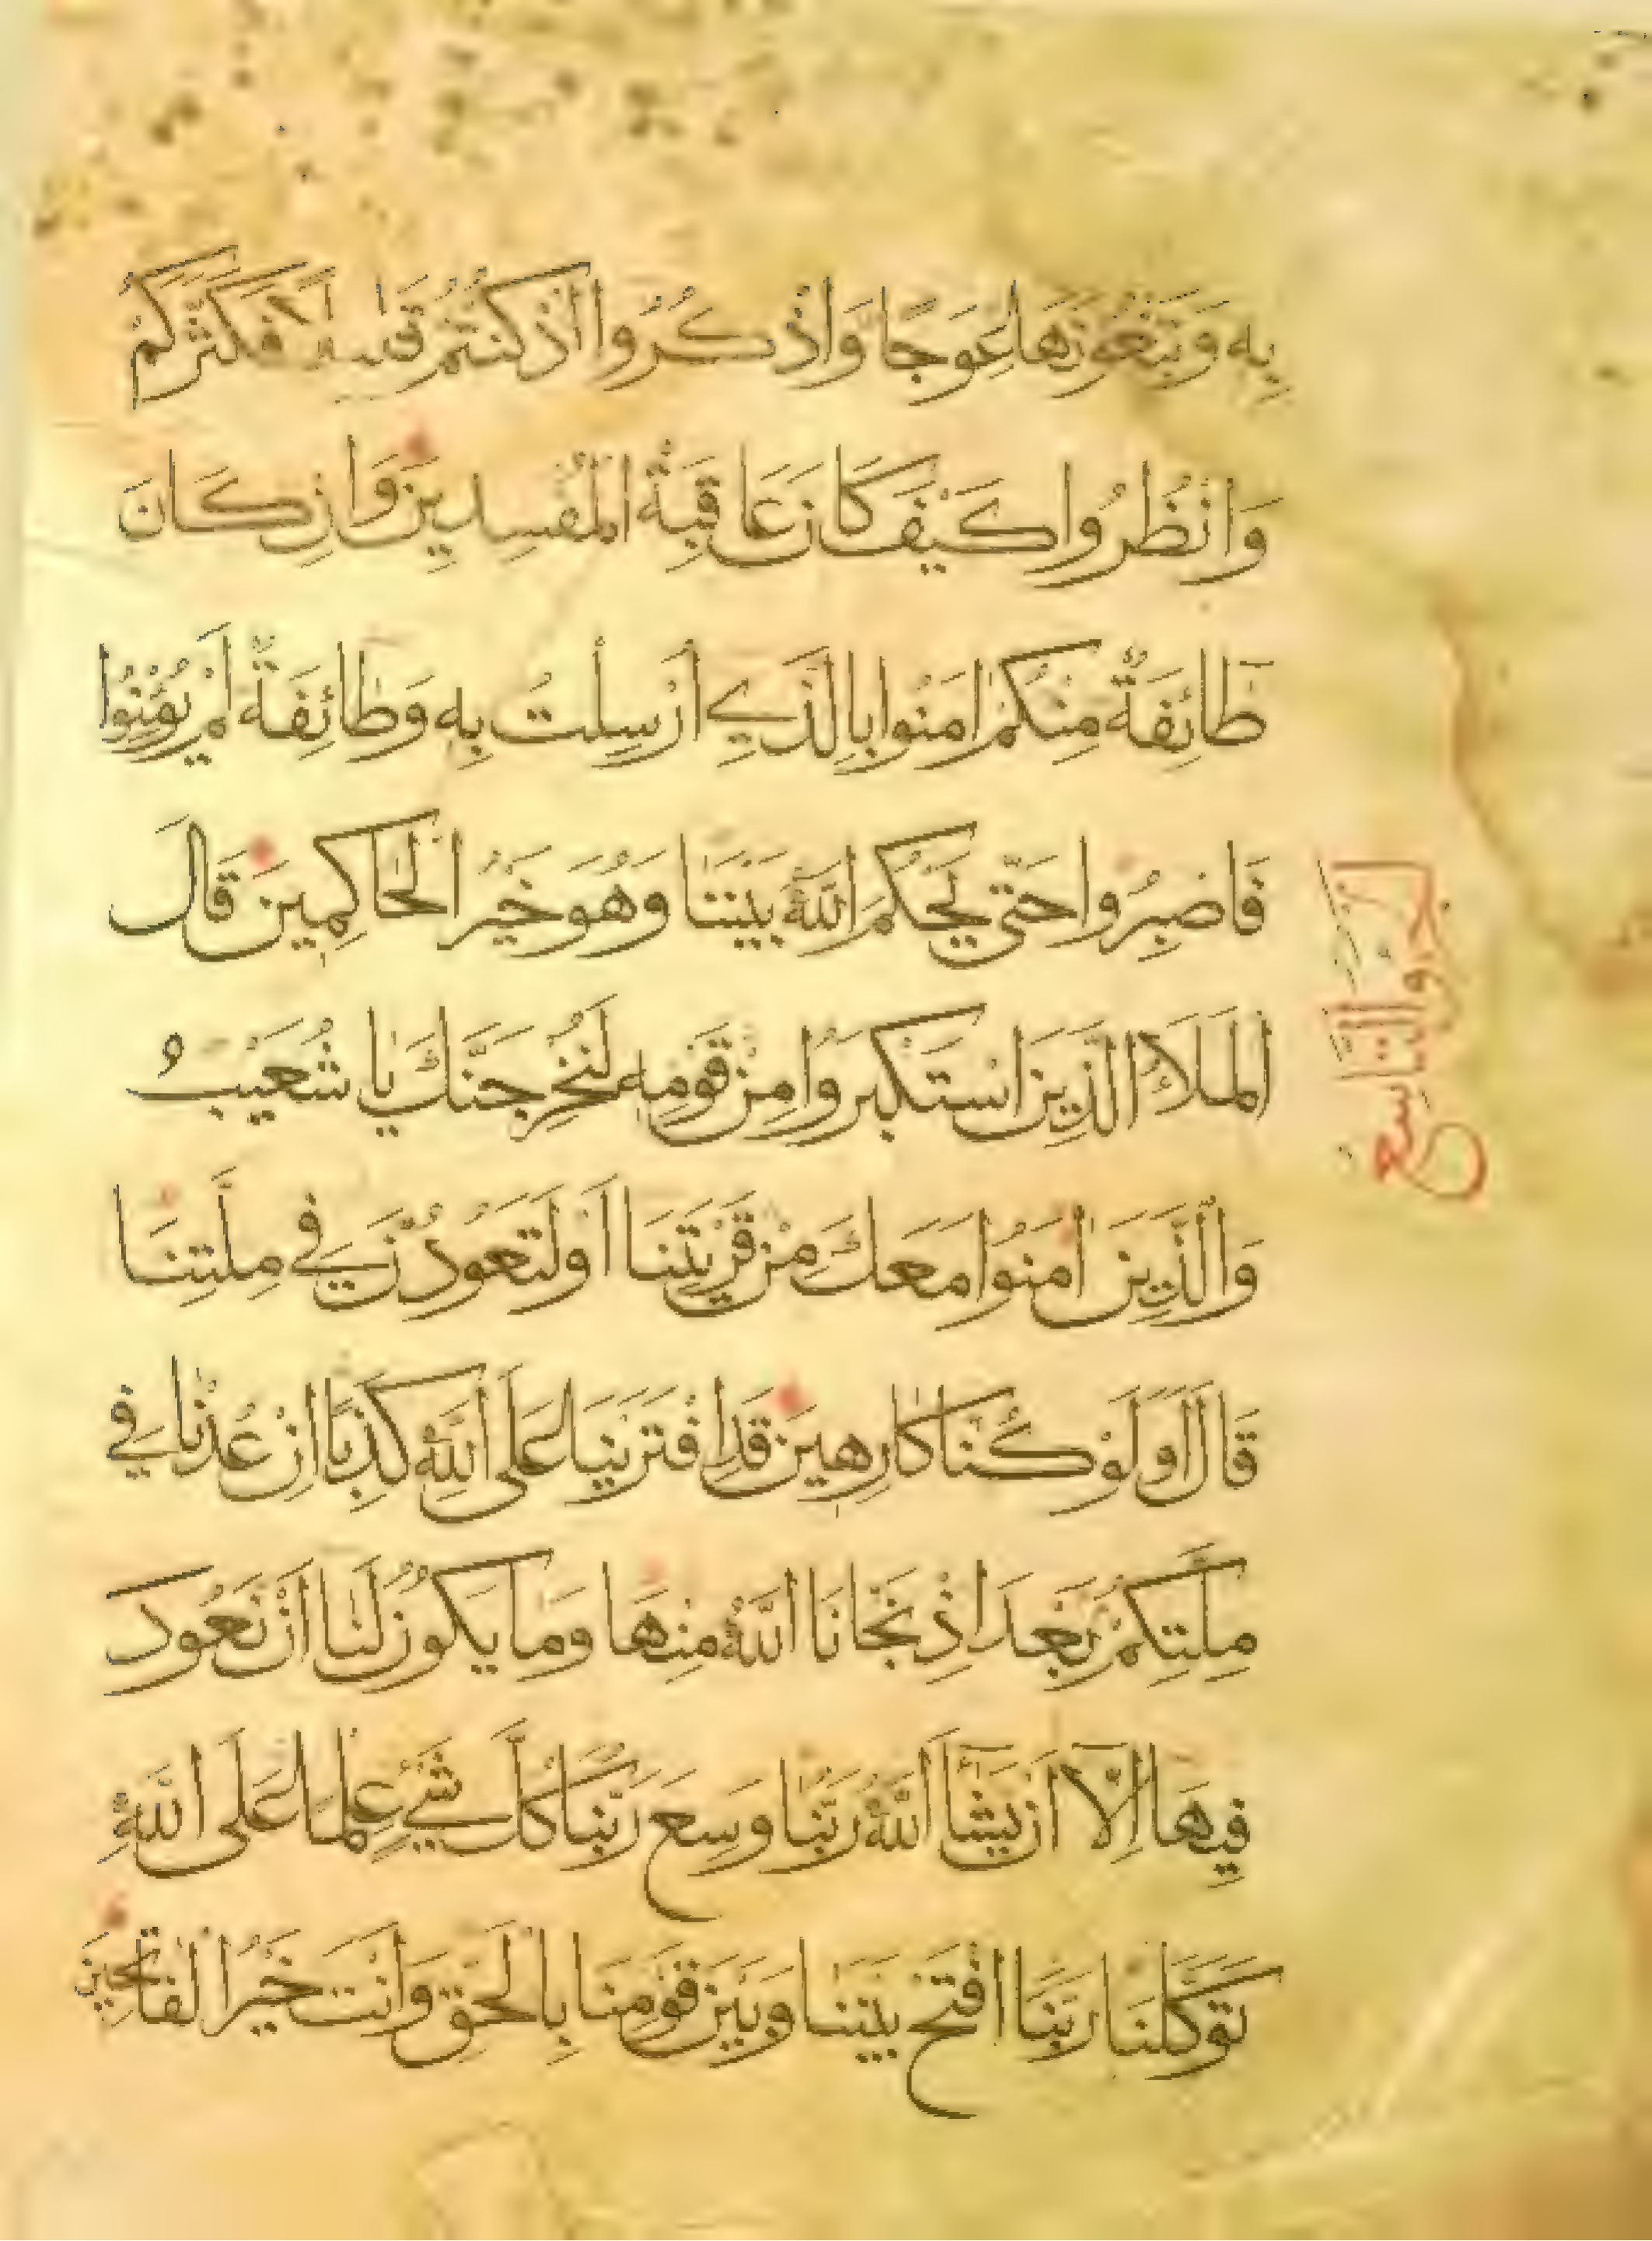 بِهِ وَتَبْغُونَهَا عِوَجًا وَاذْكُرُوا إِذْ كُنْتُمْ قَلِيلًا فَكَثَّرَكُمْ
وَانْظُرُوا كَيْفَ كَانَ عَاقِبَةُ الْمُفْسِدِينَ وَإِنْ كَانَ
طَائِفَةٌ مِنْكُمْ اٰمَنُوا بِالَّذِي أُرْسِلْتُ بِهِ وَطَائِفَةٌ لَمْ يُؤْمِنُوا
فَاصْبِرُوا حَتَّى يَحْكُمَ اللَّهُ بَيْنَنَا وَهُوَ خَيْرُ الْحَاكِمِينَ قَالَ
الْمَلَأُ الَّذِينَ اسْتَكْبَرُوا مِنْ قَوْمِهِ لَنُخْرِجَنَّكَ يَا شُعَيْبُ
وَالَّذِينَ اٰمَنُوا مَعَكَ مِنْ قَرْيَتِنَا أَوْ لَتَعُودُنَّ فِي مِلَّتِنَا
قَالَ أَوَلَوْ كُنَّا كَارِهِينَ قَدِ افْتَرَيْنَا عَلَى اللَّهِ كَذِبًا إِنْ عُدْنَا فِي
مِلَّتِكُمْ بَعْدَ إِذْ نَجَّانَا اللَّهُ مِنْهَا وَمَا يَكُونُ لَنَا أَنْ نَعُودَ
فِيهَا إِلَّا أَنْ يَشَاءَ اللَّهُ رَبُّنَا وَسِعَ رَبُّنَا كُلَّ شَيْءٍ عِلْمًا عَلَى اللَّهِ
تَوَكَّلْنَا رَبَّنَا افْتَحْ بَيْنَنَا وَبَيْنَ قَوْمِنَا بِالْحَقِّ وَأَنْتَ خَيْرُ الْفَاتِحِينَ
الجزو التاسع